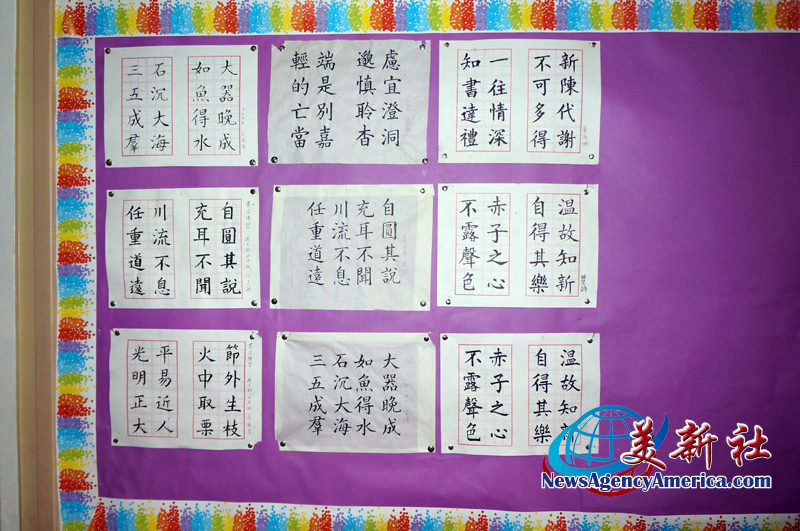 大器晚成
如魚得水
石沉大海
三五成羣
慮宜澄洞
邈慎聆杳
端是別嘉
輕的亡當
新陳代謝
不可多得
一往情深
知書達禮
自圓其說
充耳不聞
川流不息
任重道遠
自圓其說
充耳不聞
川流不息
任重道遠
温故知新
自得其樂
赤子之心
不露聲色
節外生枝
火中取栗
平易近人
光明正大
大器晚成
如魚得水
石沉大海
三五成羣
温故知新
自得其樂
赤子之心
不露聲色
美新社
NewsAgencyAmerica.com